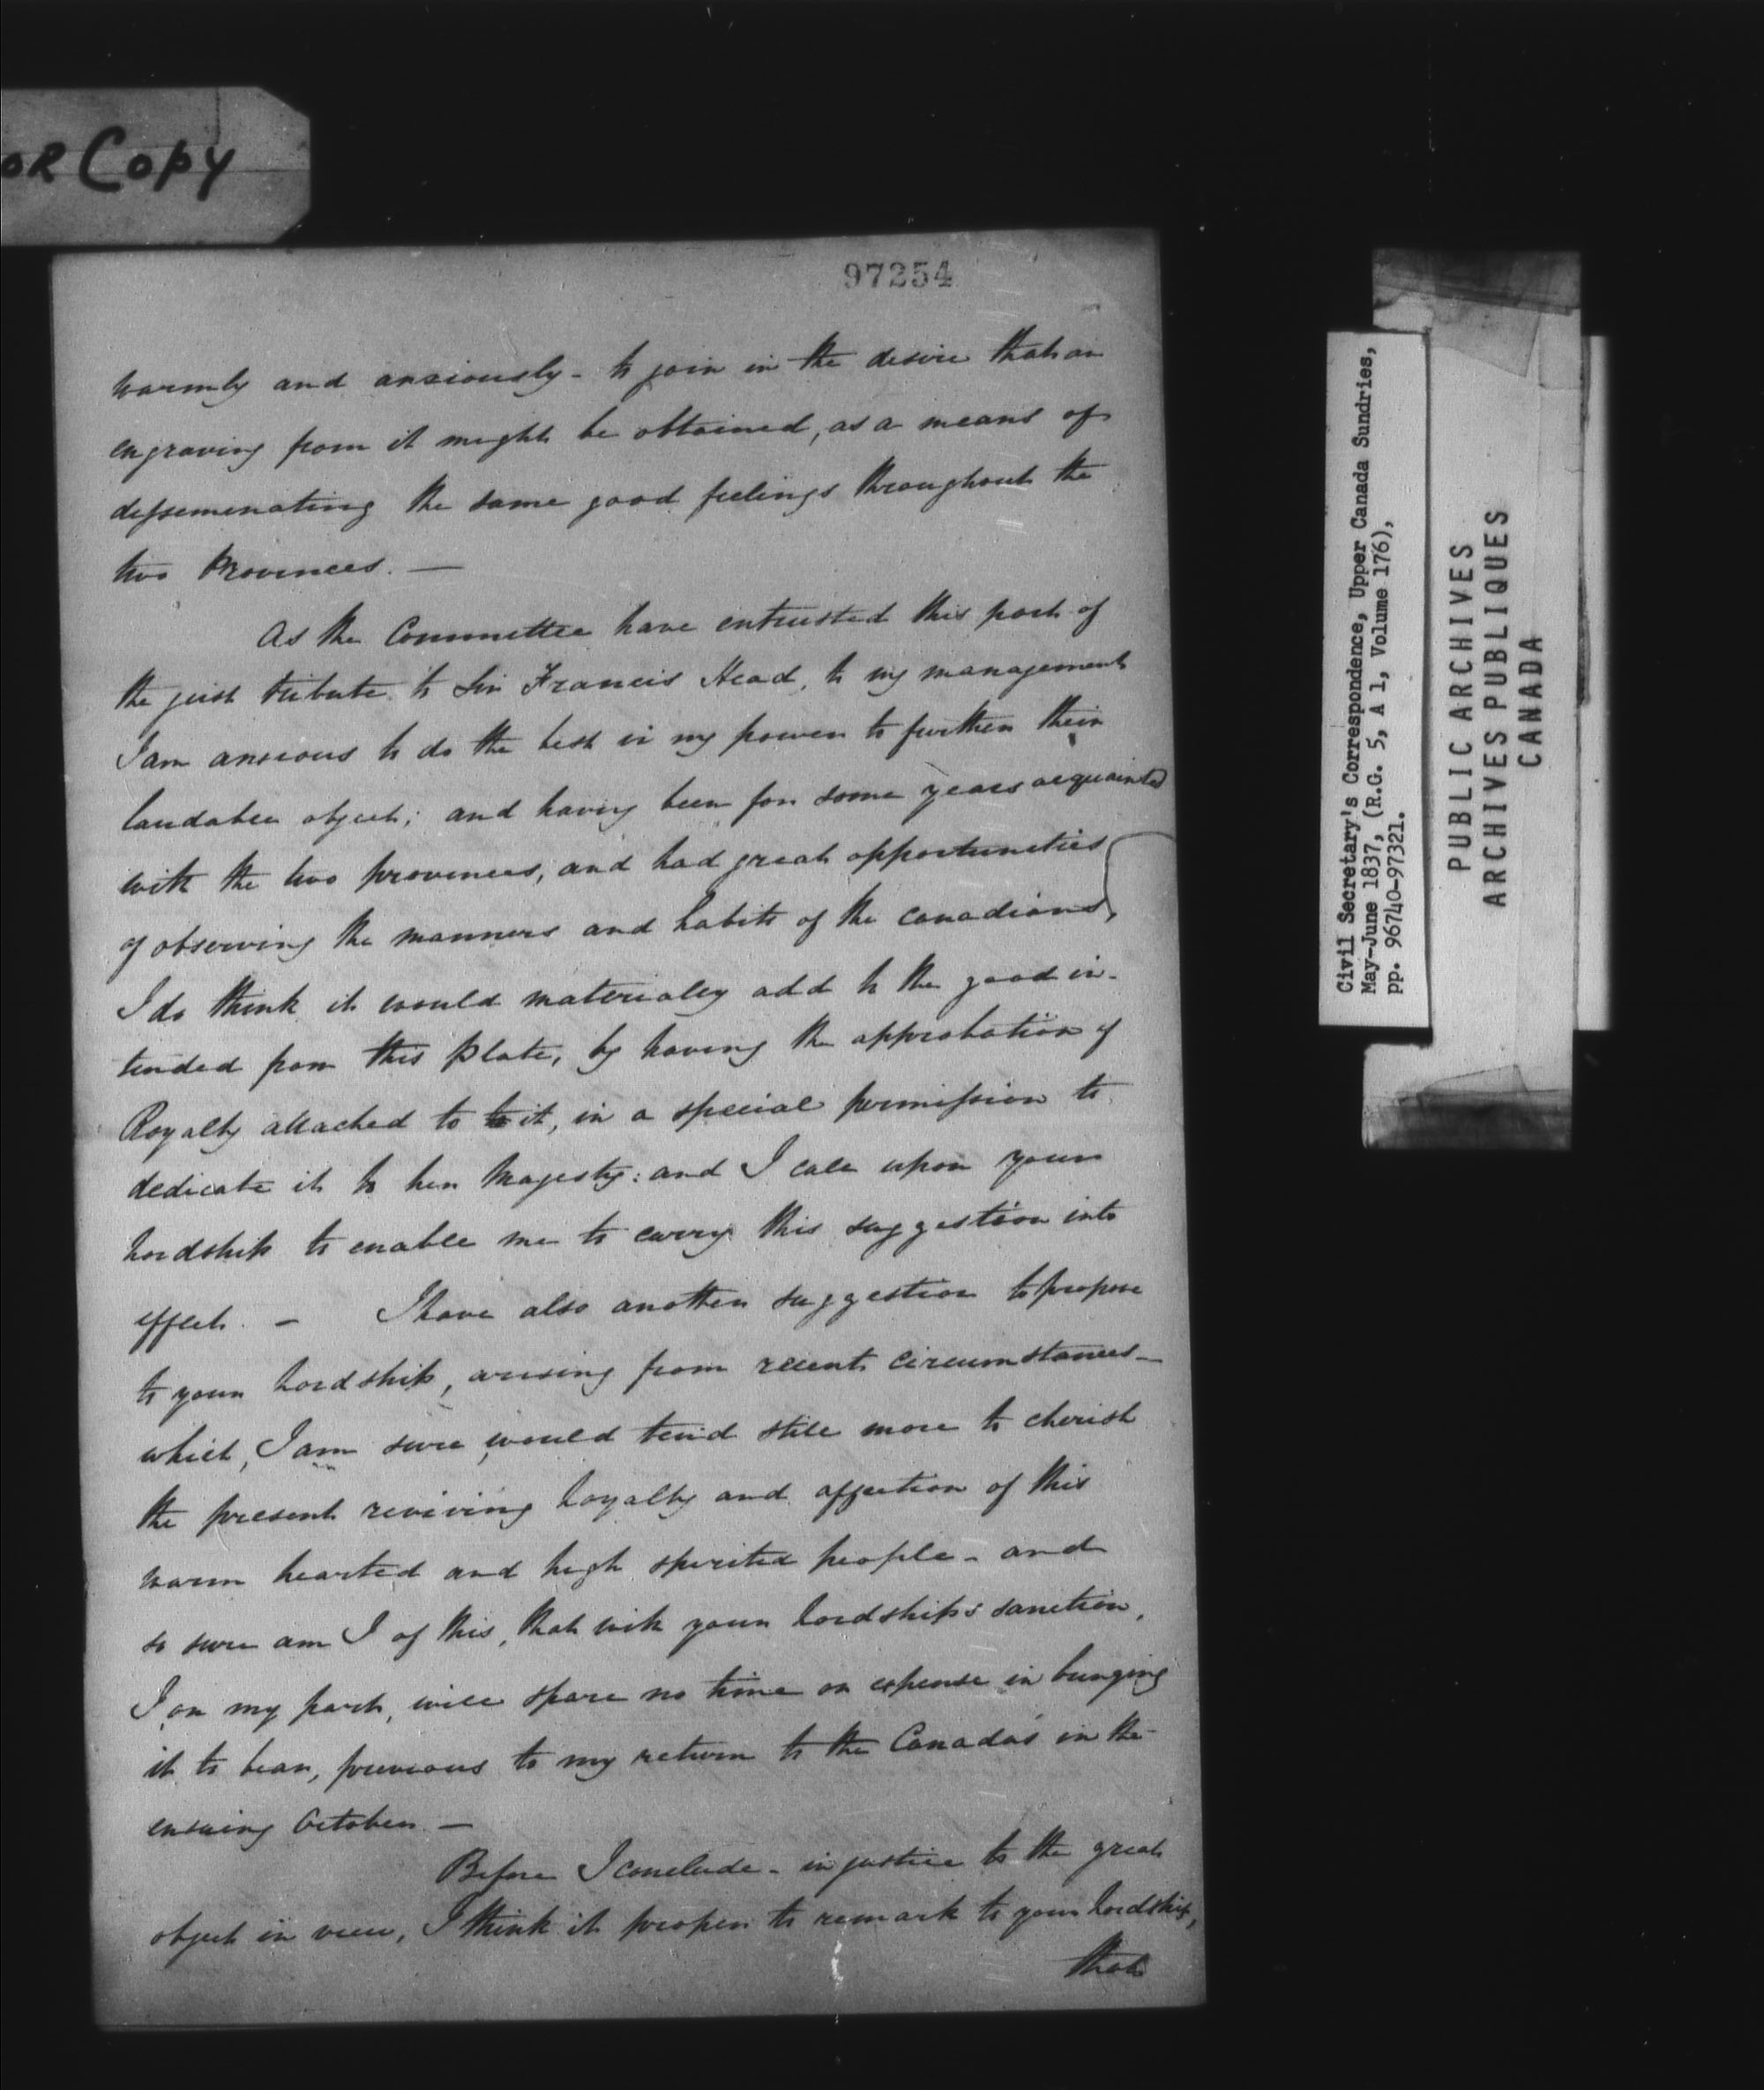 OR COPY
97254
warmly and anxiously - to join in the desire that an
engraving from it might be obtained, as a means of
desseminating the same good feelings throughout the
two Provinces. —
As the Committee have entrusted this part of
the just tribute to Sir Francis Head, to my management
I am anxious to do the best in my power to further their
laudable object; and having been for some years acquainted
with the two provinces, and had great opportunities
of observing the manners and habits of the Canadians,
I do think it would materialy add to the good in-
tended from this plate, by having the approbation of
Royalty attached to to it, in a special permission to
dedicate it to her Majesty: and I call upon your
Lordship to enable me to carry this suggestion into
effect. — I have also another suggestion to propose
to your Lordship, arising from recent circumstances —
which, I am sure, would tend still more to cherish
the present reviving loyalty and affection of this
warm hearted and high spirited people - and
so sure am I of this, that with your Lordships sanction,
I on my part, will spare no time or expense in bringing
it to bear, previous to my return to the Canada's in the
ensuing October —
Before I conclude - in justice to the great
object in view, I think it proper to remark to your Lordship,
that
Civil Secretary's Correspondence, Upper Canada Sundries,
May-June 1837, (R.G. 5, A 1, Volume 176),
pp. 96740-97321.
PUBLIC ARCHIVES
ARCHIVES PUBLIQUES
CANADA